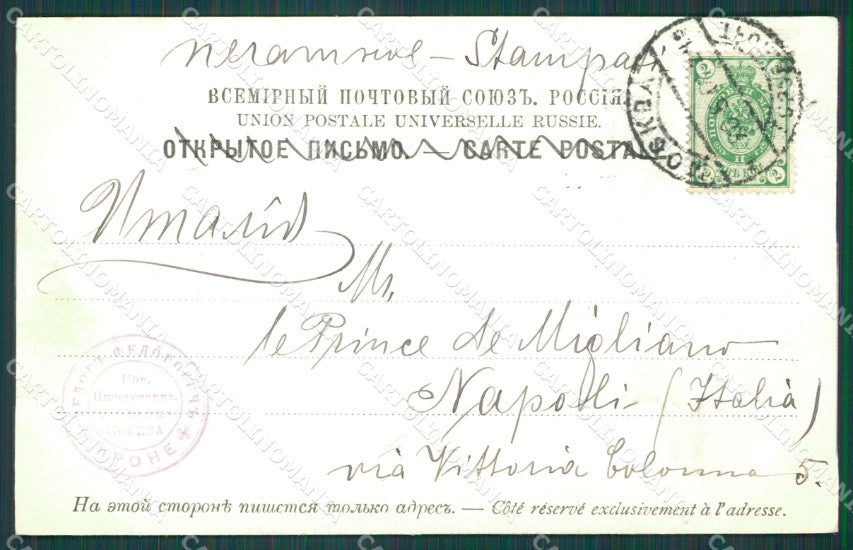 печатное - Stampati
ВСЕМІРНЫЙ ПОЧТОВЫЙ СОЮЗЪ. РОССІЯ
UNION POSTALE UNIVERSELLE RUSSIE.
ОТКРЫТОЕ ПИСЬМО. — CARTE POSTALE
МОСКВА
2 2
2 2
Италія
Mr.
le Prince de Migliano
Napoli (Italia)
via Vittoria Colonna 5.
ФЕДОРОВИЧЪ
МОСКВА
КОРОНЕ
На этой сторонѣ пишется только адресъ. — Côté réservé exclusivement à l'adresse.
CARTOLINOMANIA